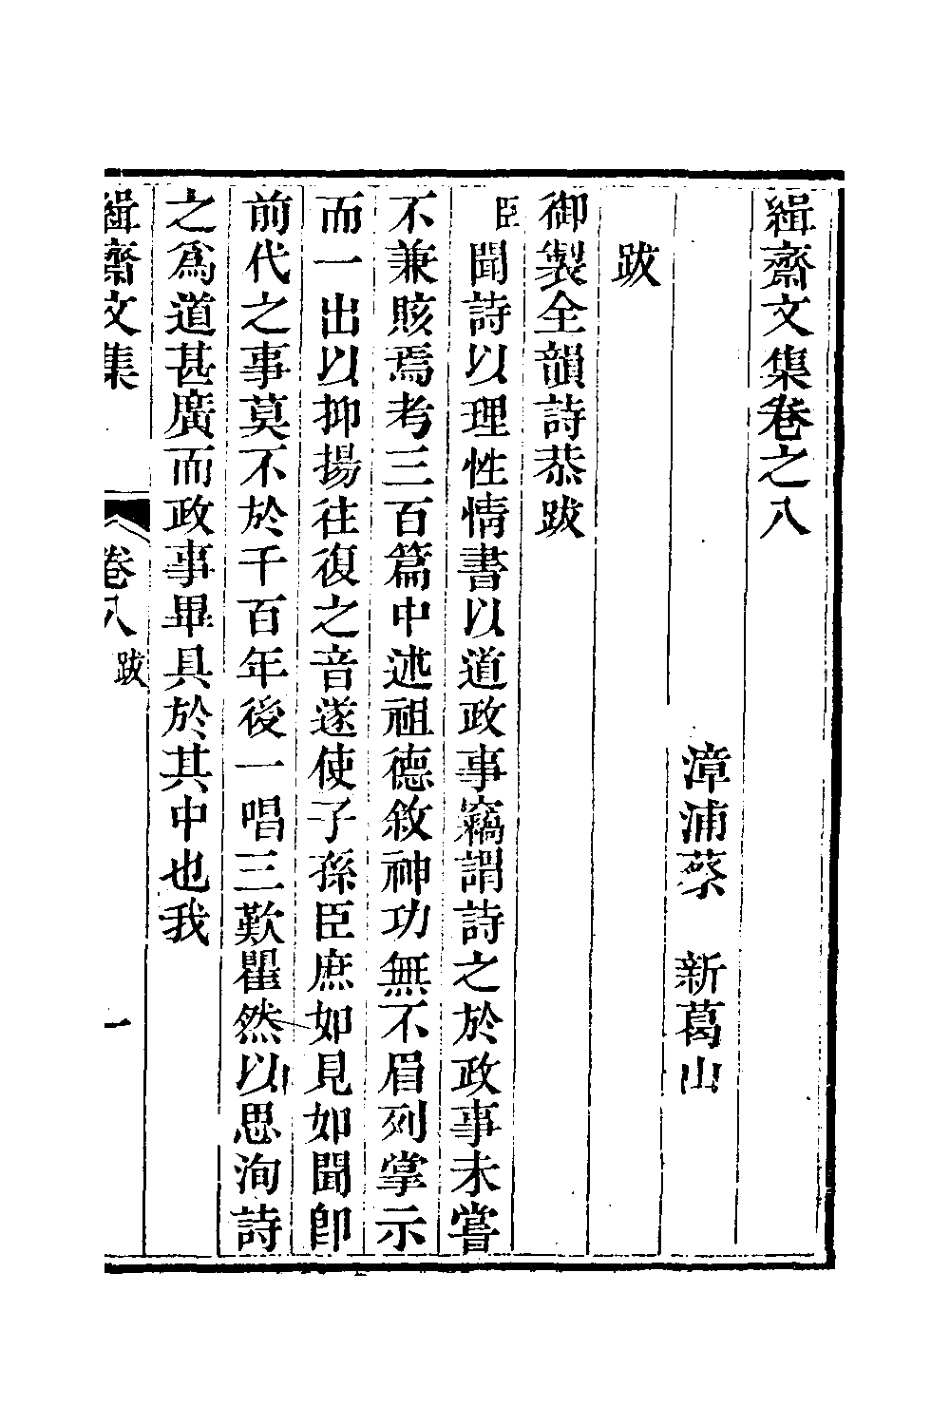 緝齋文集卷之八
漳浦蔡　新葛山
跋
御製全韻詩恭跋
臣聞詩以理性情書以道政事竊謂詩之於政事未嘗
不兼賅焉考三百篇中述祖德敘神功無不眉列掌示
而一出以抑揚往復之音遂使子孫臣庶如見如聞卽
前代之事莫不於千百年後一唱三歎瞿然以思洵詩
之爲道甚廣而政事畢具於其中也我
緝齋文集　卷八　跋　一